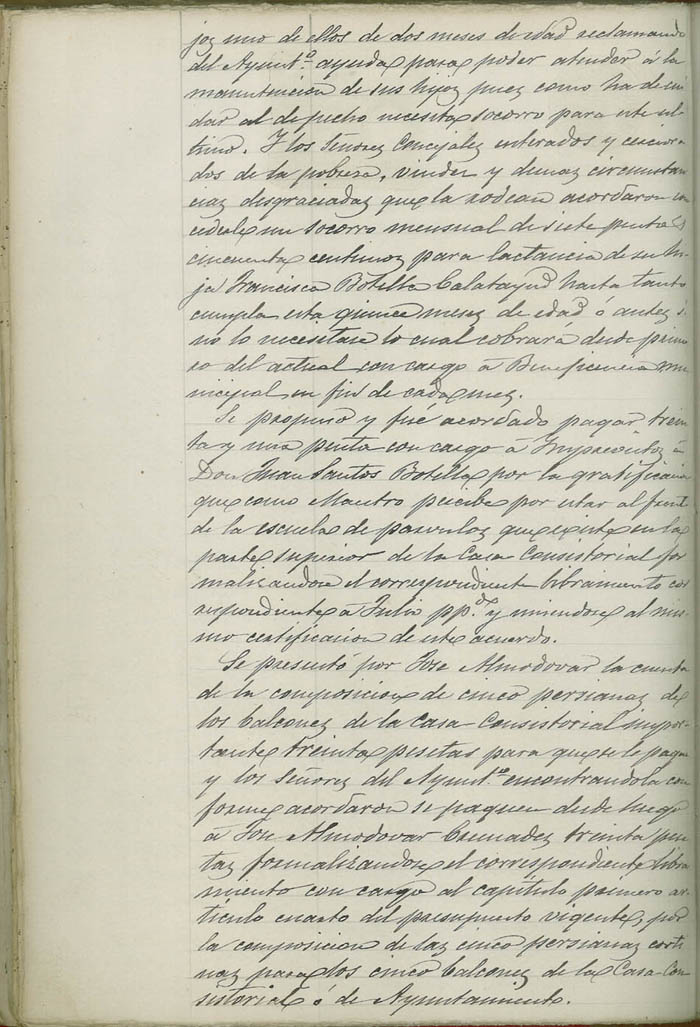 jos uno de ellos de dos meses de edad reclamando
del Ayunt.º ayuda para poder atender á la
manutencion de sus hijos pues como ha de cui
dar al de pecho necesita socorro para este ul-
timo. Y los Señores Concejales enterados y cerciora
dos de la pobreza, viudez y demas circunstan
cias desgraciadas que la rodean acordaron con
cederle un socorro mensual de siete pesetas
cincuenta centimos para lactancia de su hi
ja Francisca Botella Calatayud hasta tanto
cumpla esta quince meses de edad ó antes si
no lo necesitase lo cual cobrará desde prime
ro del actual con cargo á Beneficencia mu
nicipal en fin de cada mes.
Se propuso y fué acordado pagar trein
ta y una peseta con cargo á Imprevistos á
Don Juan Santos Botella por la gratificacion
que como Maestro percibe por estar al frente
de la escuela de parvulos que existe en la
parte superior de la Casa Consistorial for
malizandose el correspondiente libramiento cor
respondiente á Julio pp.do y uniendose al mis
mo certificacion de este acuerdo.
Se presentó por Jose Almodovar la cuenta
de la composicion de cinco persianas de
los balcones de la casa Consistorial impor
tante treinta pesetas para que se le pague
y los Señores del Ayunt.º encontrandola con
forme acordaron se paguen desde luego
á Jose Almodovar Cremades treinta pese
tas formalizandose el correspondiente libra
miento con cargo al capitulo primero ar-
ticulo cuarto del presupuesto vigente, por
la composicion de las cinco persianas corti
nas para los cinco balcones de la Casa Con
sistorial ó de Ayuntamiento.